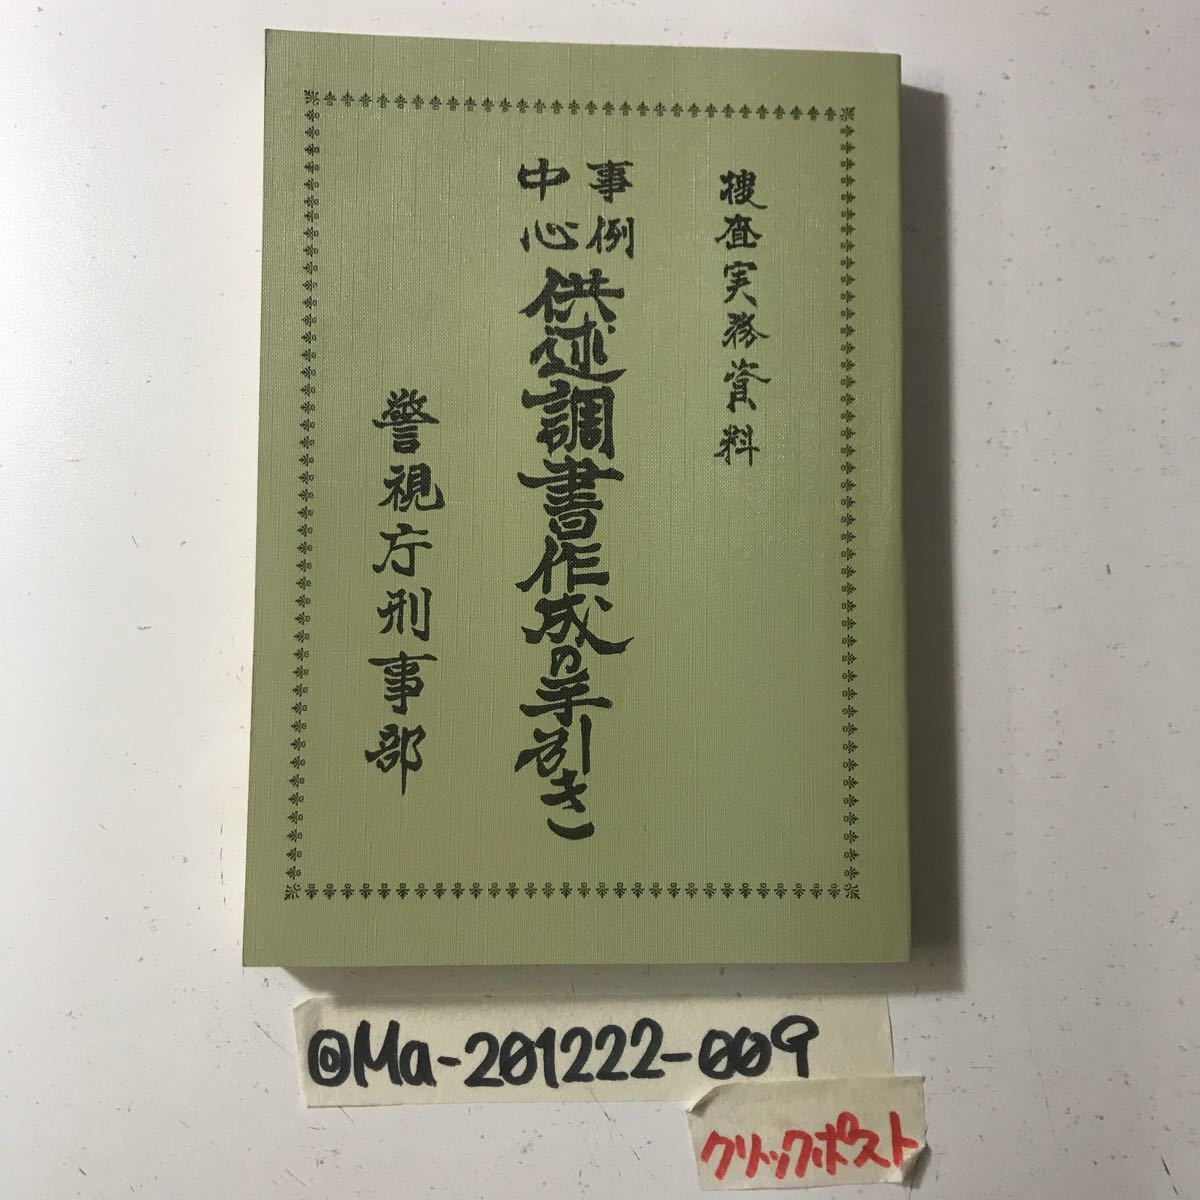 捜査実務資料
事例
中心
供述調書作成の手引き
警視庁刑事部
◎Ma-201222-009
クリックポスト